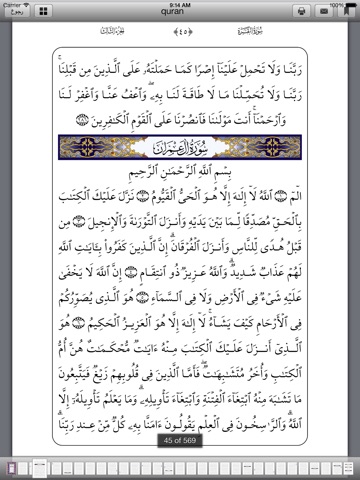 Carrier 9:14 AM 100%
رجوع quran
الجزء الثالث ﴿٤٥﴾ سورة البقرة
رَبَّنَا وَلَا تَحْمِلْ عَلَيْنَآ إِصْرًا كَمَا حَمَلْتَهُۥ عَلَى ٱلَّذِينَ مِن قَبْلِنَا ۚ
رَبَّنَا وَلَا تُحَمِّلْنَا مَا لَا طَاقَةَ لَنَا بِهِۦ ۖ وَٱعْفُ عَنَّا وَٱغْفِرْ لَنَا
وَٱرْحَمْنَآ ۚ أَنتَ مَوْلَىٰنَا فَٱنصُرْنَا عَلَى ٱلْقَوْمِ ٱلْكَٰفِرِينَ
سُورَةُ آلِ عِمْرَانَ
بِسْمِ ٱللَّهِ ٱلرَّحْمَٰنِ ٱلرَّحِيمِ
الٓمٓ ٱللَّهُ لَآ إِلَٰهَ إِلَّا هُوَ ٱلْحَىُّ ٱلْقَيُّومُ نَزَّلَ عَلَيْكَ ٱلْكِتَٰبَ
بِٱلْحَقِّ مُصَدِّقًا لِّمَا بَيْنَ يَدَيْهِ وَأَنزَلَ ٱلتَّوْرَىٰةَ وَٱلْإِنجِيلَ مِن
قَبْلُ هُدًى لِّلنَّاسِ وَأَنزَلَ ٱلْفُرْقَانَ ۗ إِنَّ ٱلَّذِينَ كَفَرُوا۟ بِـَٔايَٰتِ ٱللَّهِ
لَهُمْ عَذَابٌ شَدِيدٌ ۗ وَٱللَّهُ عَزِيزٌ ذُو ٱنتِقَامٍ إِنَّ ٱللَّهَ لَا يَخْفَىٰ
عَلَيْهِ شَىْءٌ فِى ٱلْأَرْضِ وَلَا فِى ٱلسَّمَآءِ هُوَ ٱلَّذِى يُصَوِّرُكُمْ
فِى ٱلْأَرْحَامِ كَيْفَ يَشَآءُ ۚ لَآ إِلَٰهَ إِلَّا هُوَ ٱلْعَزِيزُ ٱلْحَكِيمُ هُوَ
ٱلَّذِىٓ أَنزَلَ عَلَيْكَ ٱلْكِتَٰبَ مِنْهُ ءَايَٰتٌ مُّحْكَمَٰتٌ هُنَّ أُمُّ
ٱلْكِتَٰبِ وَأُخَرُ مُتَشَٰبِهَٰتٌ ۖ فَأَمَّا ٱلَّذِينَ فِى قُلُوبِهِمْ زَيْغٌ فَيَتَّبِعُونَ
مَا تَشَٰبَهَ مِنْهُ ٱبْتِغَآءَ ٱلْفِتْنَةِ وَٱبْتِغَآءَ تَأْوِيلِهِۦ ۗ وَمَا يَعْلَمُ تَأْوِيلَهُۥٓ إِلَّا
ٱللَّهُ ۗ وَٱلرَّٰسِخُونَ فِى ٱلْعِلْمِ يَقُولُونَ ءَامَنَّا بِهِۦ كُلٌّ مِّنْ عِندِ رَبِّنَا ۗ
45 of 569